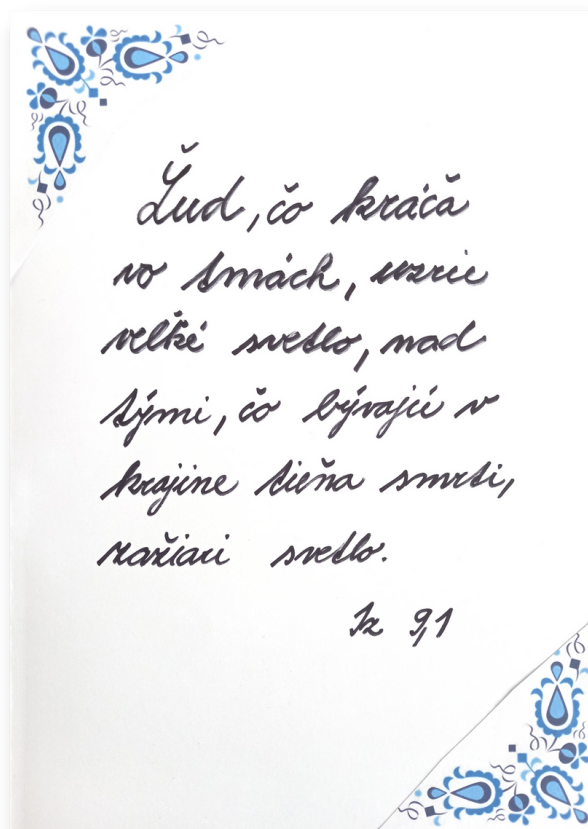 Ľud, čo kráča
vo tmách, uzrie
veľké svetlo, nad
tými, čo bývajú v
krajine tieňa smrti,
zažiari svetlo.
Iz 9,1